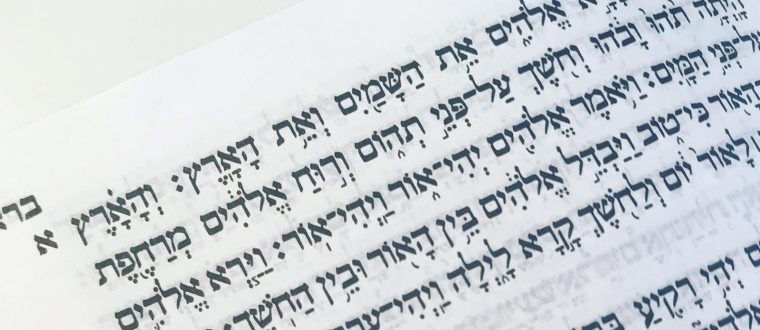 אֱלֹהִ֑ים אֵ֥ת הַשָּׁמַ֖יִם וְאֵ֥ת הָאָֽרֶץ׃ וְהָאָ֗רֶץ
הָיְתָ֥ה תֹ֙הוּ֙ וָבֹ֔הוּ וְחֹ֖שֶׁךְ עַל־פְּנֵ֣י תְה֑וֹם וְר֣וּחַ אֱלֹהִ֔ים מְרַחֶ֖פֶת
פְּנֵ֥י הַמָּֽיִם׃ וַיֹּ֥אמֶר אֱלֹהִ֖ים יְהִ֣י א֑וֹר וַֽיְהִי־אֽוֹר׃ וַיַּ֧רְא אֱלֹהִ֛ים
הָא֖וֹר כִּי־ט֑וֹב וַיַּבְדֵּ֣ל אֱלֹהִ֔ים בֵּ֥ין הָא֖וֹר וּבֵ֥ין הַחֹֽשֶׁךְ׃
לָאוֹר֙ י֔וֹם וְלַחֹ֖שֶׁךְ קָ֣רָא לָ֑יְלָה וַֽיְהִי־
יְהִ֥י רָקִ֖יעַ
א